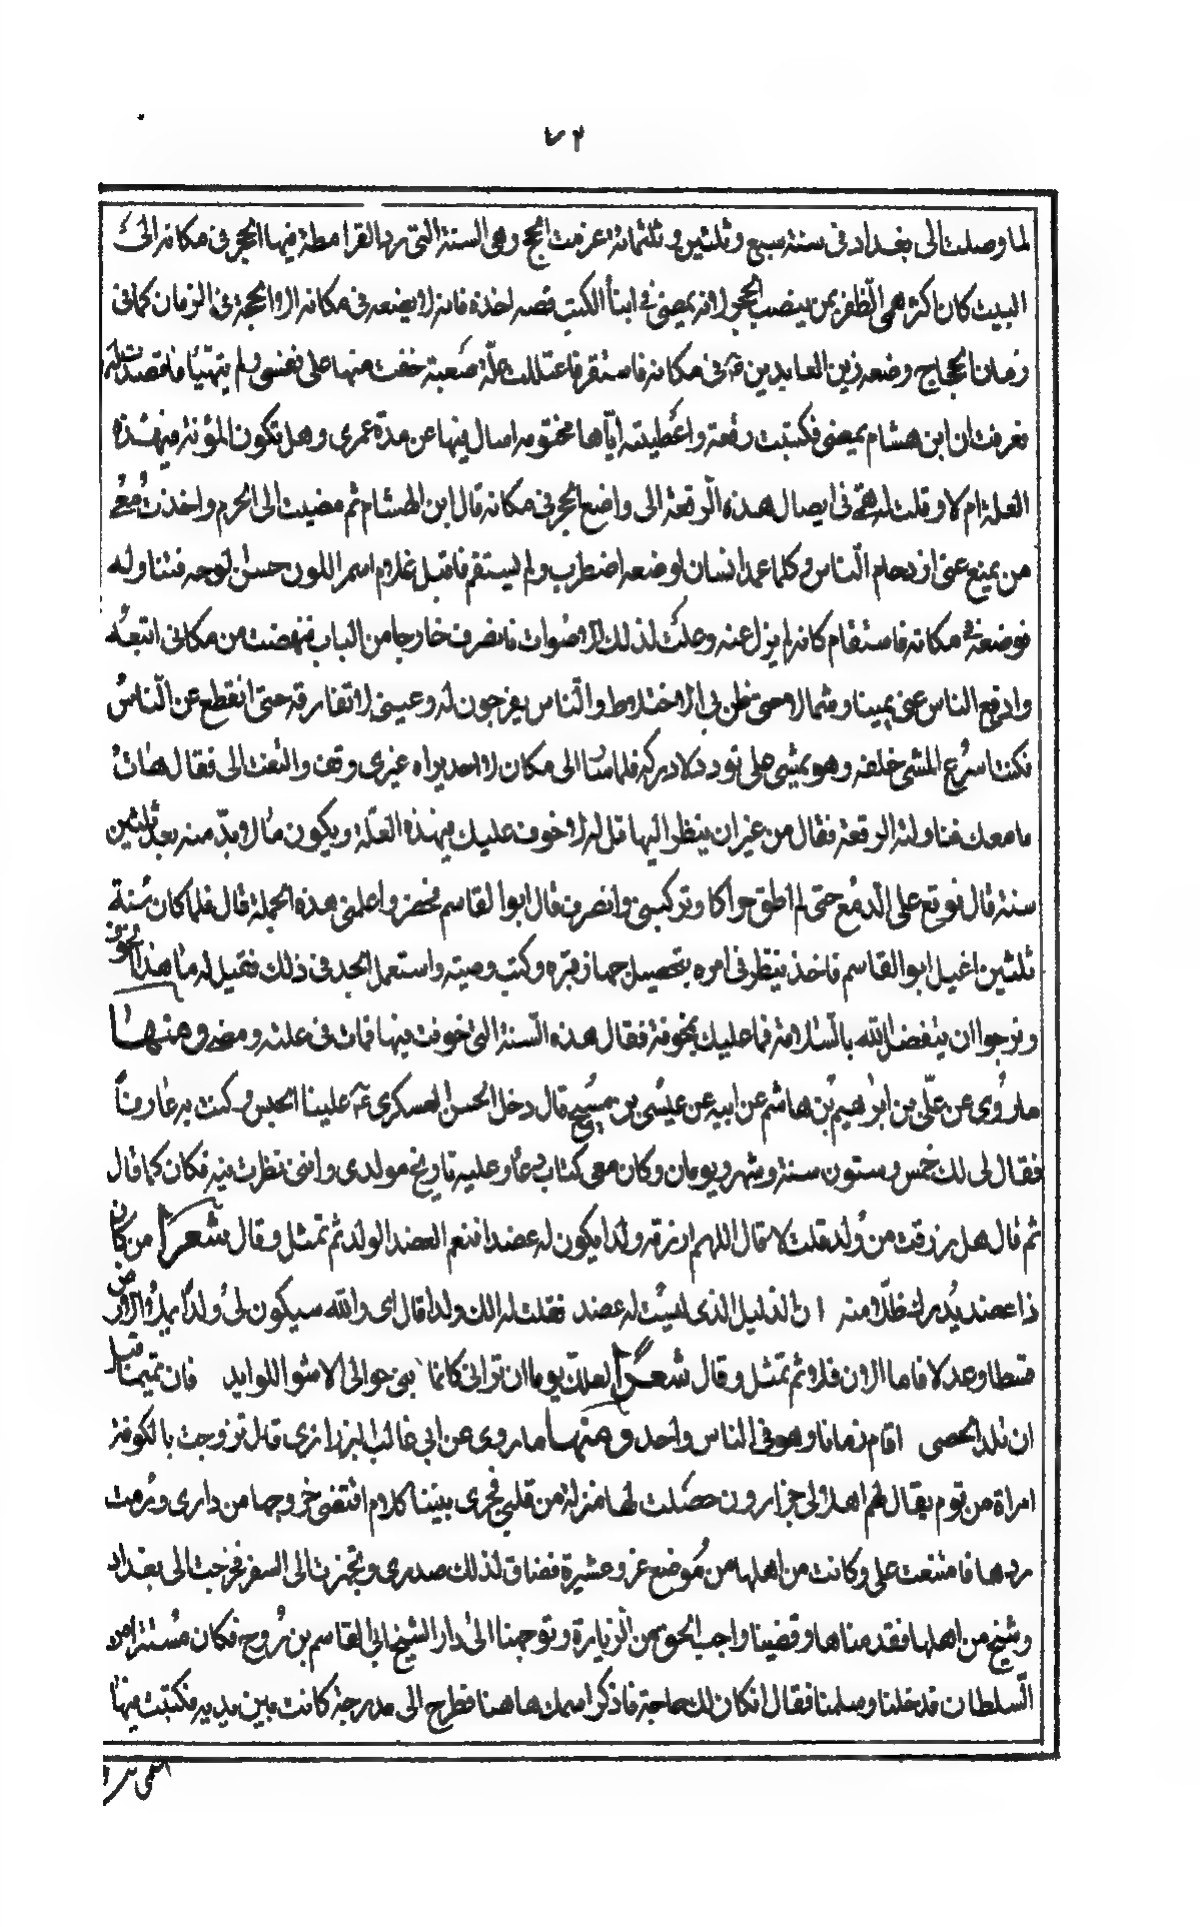 ٧٢
لما وصلت الى بغداد فى سنة سبع و ثلثين و ثلثمائة عزمت الحج وهى السنة التى رد القرامطة فيها الحجر فى مكانه الى
البيت كان اكثر همى الظفر بمن ينصب الحجر لانه يمضى فى ابناء الكتب قصه اخذه فانه لا يضعه فى مكانه الا الحجة فى الزمان كما فى
زمان الحجاج وضعه زين العابدين فى مكانه فاستقر فاعتللت علة صعبة خفت منها على نفسى ولم يتهيا ما قصدت له
فعرفت ان ابن هشام يمضى فكتبت رقعة واعطيته اياها مختومه اسال فيها عن مدة عمرى وهل تكون المؤنة فى هذه
العلة ام لا وقلت له همى فى ايصال هذه الرقعة الى واضع الحجر فى مكانه قال ابن هشام ثم مضيت الى الحرم واخذت معى
من يمنع عنى ازدحام الناس وكلما عمد انسان لوضعه اضطرب ولم يستقم فاقبل غلام اسمر اللون حسن الوجه فتناوله
فوضعه فى مكانه فاستقام كانه لم يزل عنه وعلت لذلك الاصوات فانصرف خارجا من الباب فنهضت من مكانى اتبعه
وادفع الناس عنى يمينا وشمالا حتى ظن بى الاختلاط والناس يفرجون له وعينى لا تفارقه حتى انقطع عن الناس
فكنت اسرع المشى خلفه وهو يمشى على تودد ولا ادركه فلما الى مكان لا احد يراه غيرى وقف والتفت الى فقال هات
ما معك فناولته الرقعة فقال من غير ان ينظر اليها قل له لا خوف عليك بهذه العلة ويكون ما لا بد منه بعد ثلثين
سنة قال فوقع على الدمع حتى لم اطق حراكا وتركنى وانصرف قال ابو القاسم فحضر واعلمنى هذه الجملة قال فلما كان سنة
ثلثين اغيل ابو القاسم فاخذ ينظر فى امره بتحصيل جهاز قبره وكتب وصيته واستعمل الجد فى ذلك فقيل له ما هذا الخوف
ونرجوا ان يتفضل الله بالسلامة فما عليك بمخوفة فقال هذه السنة التى خوفت فيها فمات فى علته ومضى ومنها
ما روى عن على بن ابراهيم بن هاشم عن ابيه عن عيسى بن مسيح قال دخل الحسن العسكرى علينا الحبس وكنت به عارفا
فقال لى لك خمس وستون سنة وشهر ويومان وكان معى كتاب دعاء وعليه تاريخ مولدى وانى نظرت فيه فكان كما قال
ثم قال هل رزقت من ولد قلت لا قال اللهم ارزقه ولدا يكون له عضدا فنعم العضد الولد ثم تمثل وقال شعرا من كان
ذا عضد يدرك ظلامته ان الذليل الذى ليست له عضد فقلت له الك ولد قال اى والله سيكون لى ولد يملؤ الارض
قسطا وعدلا فاما الان فلا ثم تمثل وقال شعرا لعلك يوما ان ترانى كانما بنى حوالى الاشو اللوابد فان تميما قبل
ان تلد الحصى اقام زمانا وهو فى الناس واحد ومنها ما روى عن ابى غالب الزرارى قال تزوجت بالكوفة
امراة من قوم يقال لهم اهلالى خزارون حصلت لها منزلة من قلبى فجرى بيننا كلام اقتضى خروجها من دارى ورمت
ردها فامتنعت على وكانت من اهلها من موضع عز وعشيرة فضاق لذلك صدرى وتجهزت الى السفر فخرجت الى بغداد
وشيخ من اهلها فقدمناها وقضينا واجب الحق من الزيارة وتوجهنا الى دار الشيخ ابى القاسم بن روح فكان مستترا من
السلطان فدخلنا وسلمنا فقال ان كان لك حاجة فاذكر اسمك هاهنا فطرح الى مدرجة كانت بين يديه فكتبت فيها